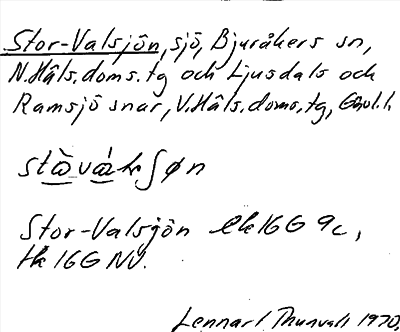 Stor-Valsjön, sjö, Bjuråkers sn,
N.Häls.doms.tg och Ljusdals och
Ramsjö snar, V.Häls.doms.tg, Gävl.l.
Stor-Valsjön Ek 16G 9c,
Tk 16G NV.
Lennart Thunvall 1970.